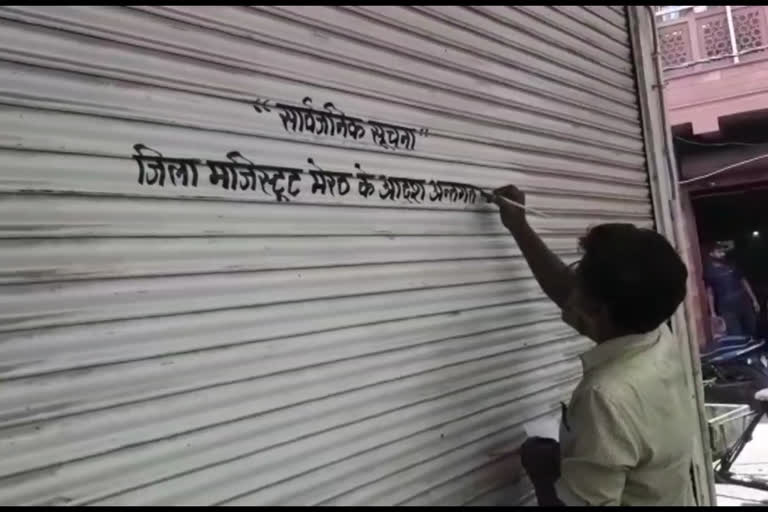 “सार्वजनिक सूचना”
जिला मजिस्ट्रूट मेरठ के आदश अन्तगत